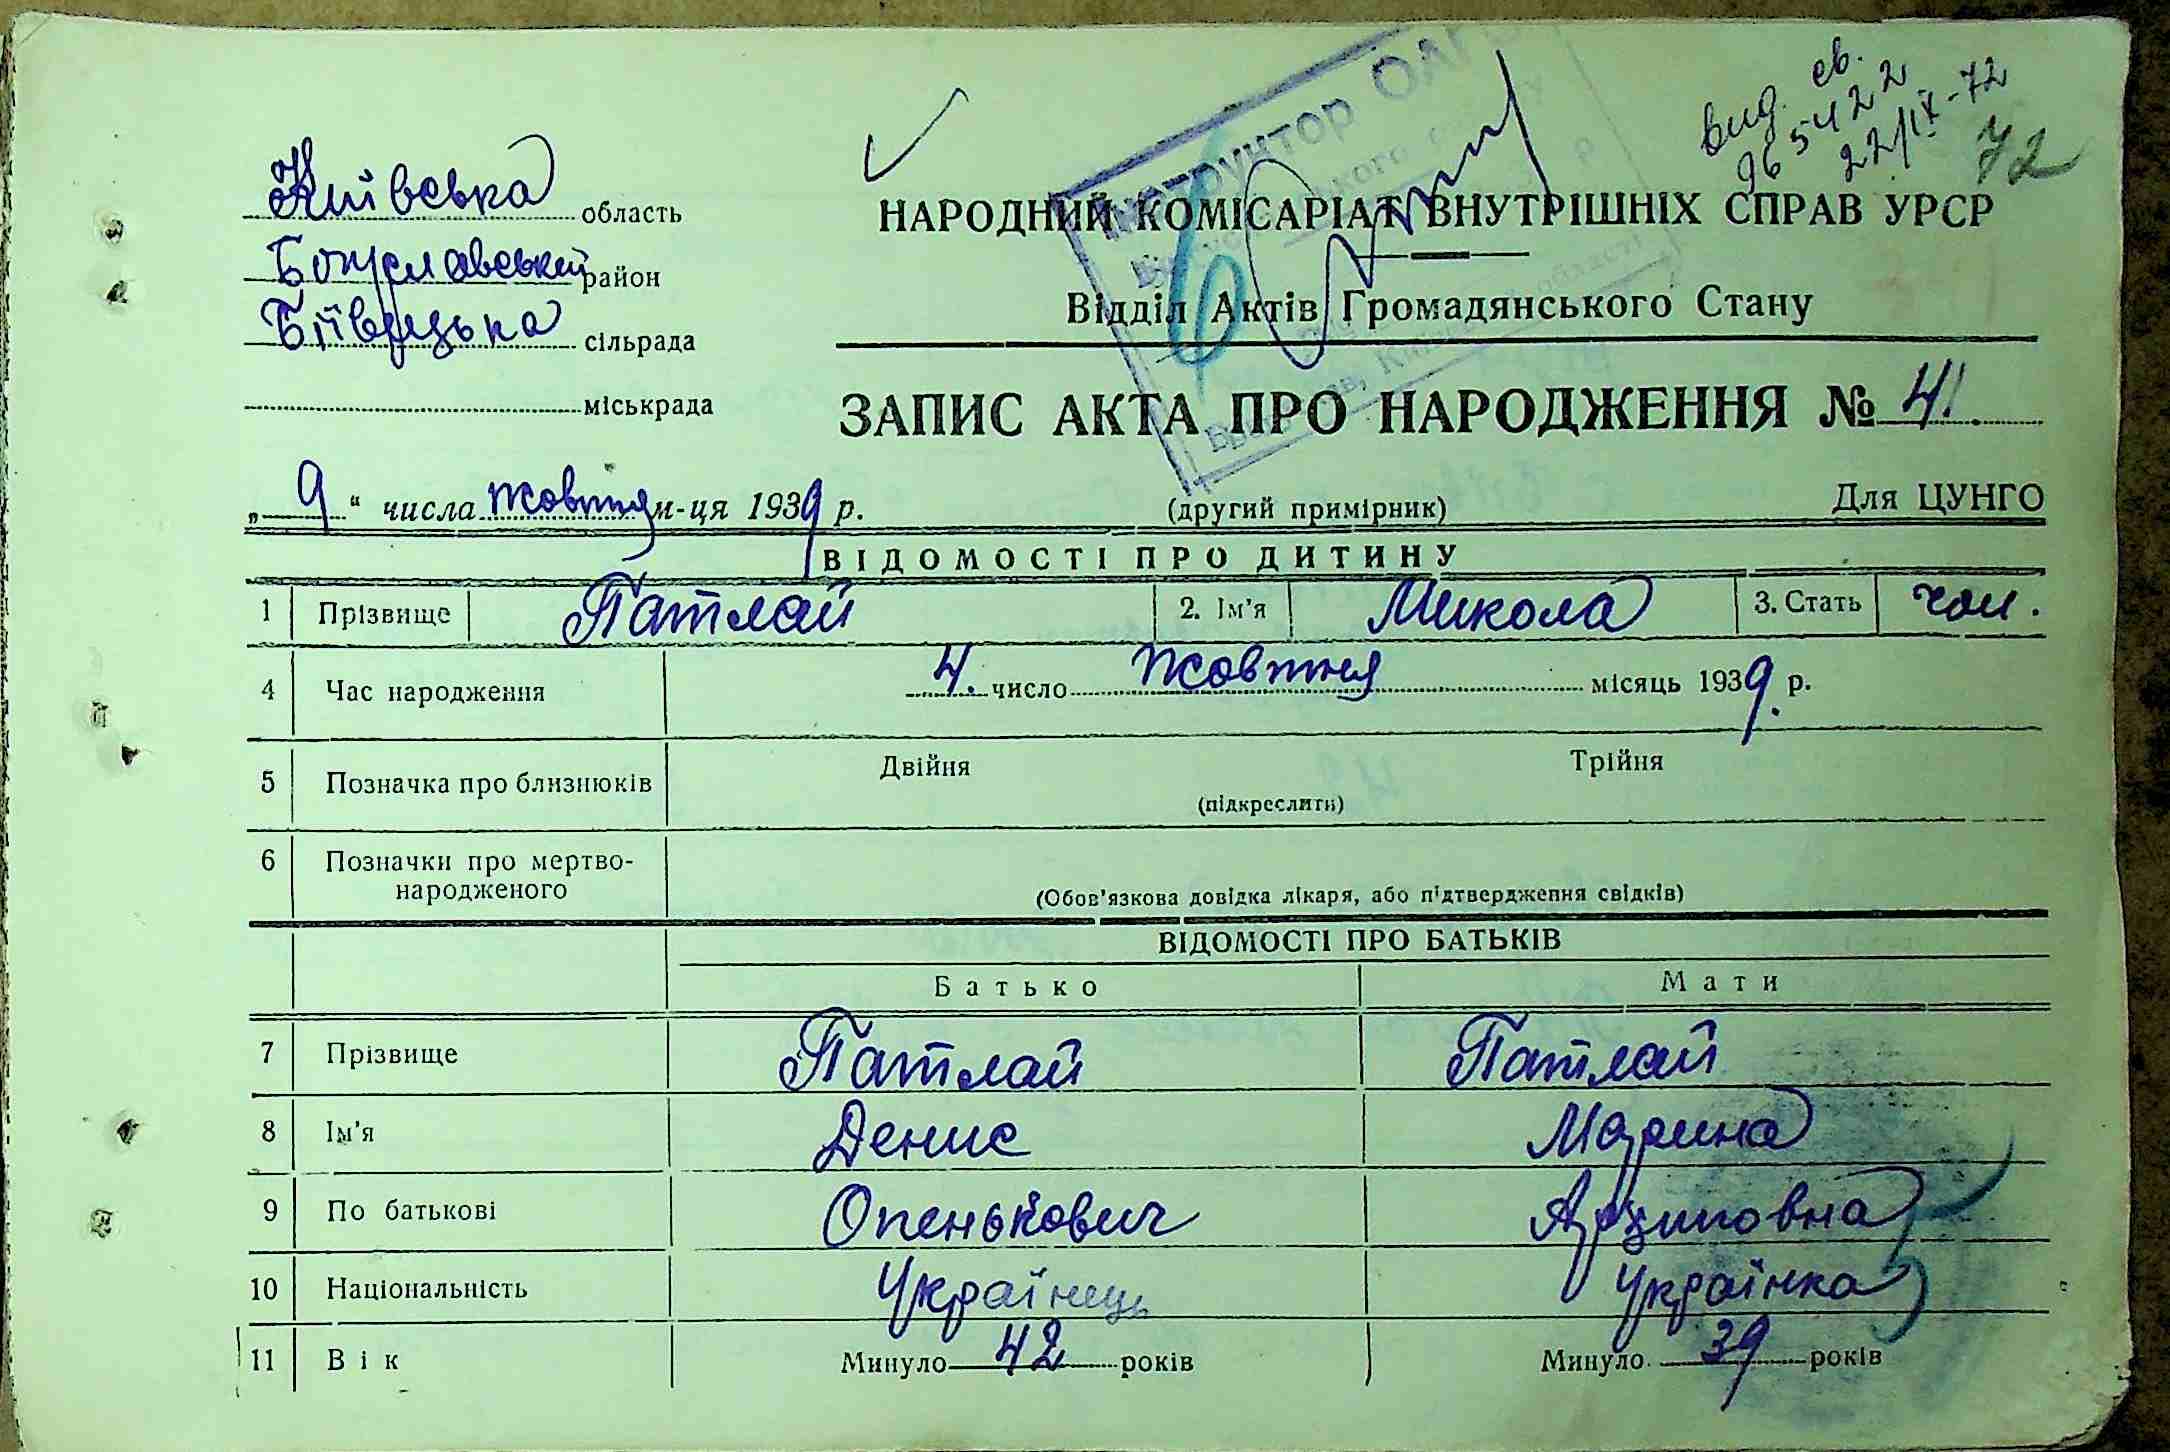 вид. св.
965422
22/IX-72
72
Київська область
Богуславський район
Бійвецька сільрада
міськрада
Інструктор ОАГС
НАРОДНИЙ КОМІСАРІАТ ВНУТРІШНІХ СПРАВ УРСР
Відділ Актів Громадянського Стану
ЗАПИС АКТА ПРО НАРОДЖЕННЯ № 4
„9“ числа жовтня м-ця 1939 р.
(другий примірник)
Для ЦУНГО
ВІДОМОСТІ ПРО ДИТИНУ
1 Прізвище Патлай 2. Ім'я Микола 3. Стать чол.
4 Час народження 4. число жовтня місяць 1939 р.
5 Позначка про близнюків Двійня Трійня
(підкреслити)
6 Позначки про мертво-
народженого
(Обов'язкова довідка лікаря, або підтвердження свідків)
ВІДОМОСТІ ПРО БАТЬКІВ
Батько Мати
7 Прізвище Патлай Патлай
8 Ім'я Денис Марина
9 По батькові Опенькович Архиповна
10 Національність Українець Українка
11 Вік Минуло 42 років Минуло 39 років